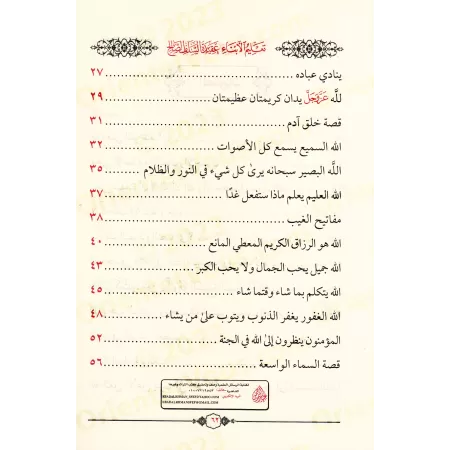 تعليم الأبناء عقيدة السلف الصالح
ينادي عباده ........ ٢٧
لله عَزَّوَجَلَّ يدان كريمتان عظيمتان ........ ٢٩
قصة خلق آدم ........ ٣١
الله السميع يسمع كل الأصوات ........ ٣٢
اللَّه البصير سبحانه يرىٰ كل شيء في النور والظلام ........ ٣٥
الله العليم يعلم ماذا ستفعل غدًا ........ ٣٧
مفاتيح الغيب ........ ٣٨
الله هو الرزاق الكريم المعطي المانع ........ ٤٠
الله جميل يحب الجمال ولا يحب الكبر ........ ٤٣
الله يتكلم بما شاء وقتما شاء ........ ٤٥
الله الغفور يغفر الذنوب ويتوب علىٰ من يشاء ........ ٤٨
المؤمنون ينظرون إلىٰ الله في الجنة ........ ٥٢
قصة السماء الواسعة ........ ٥٦
٦٢